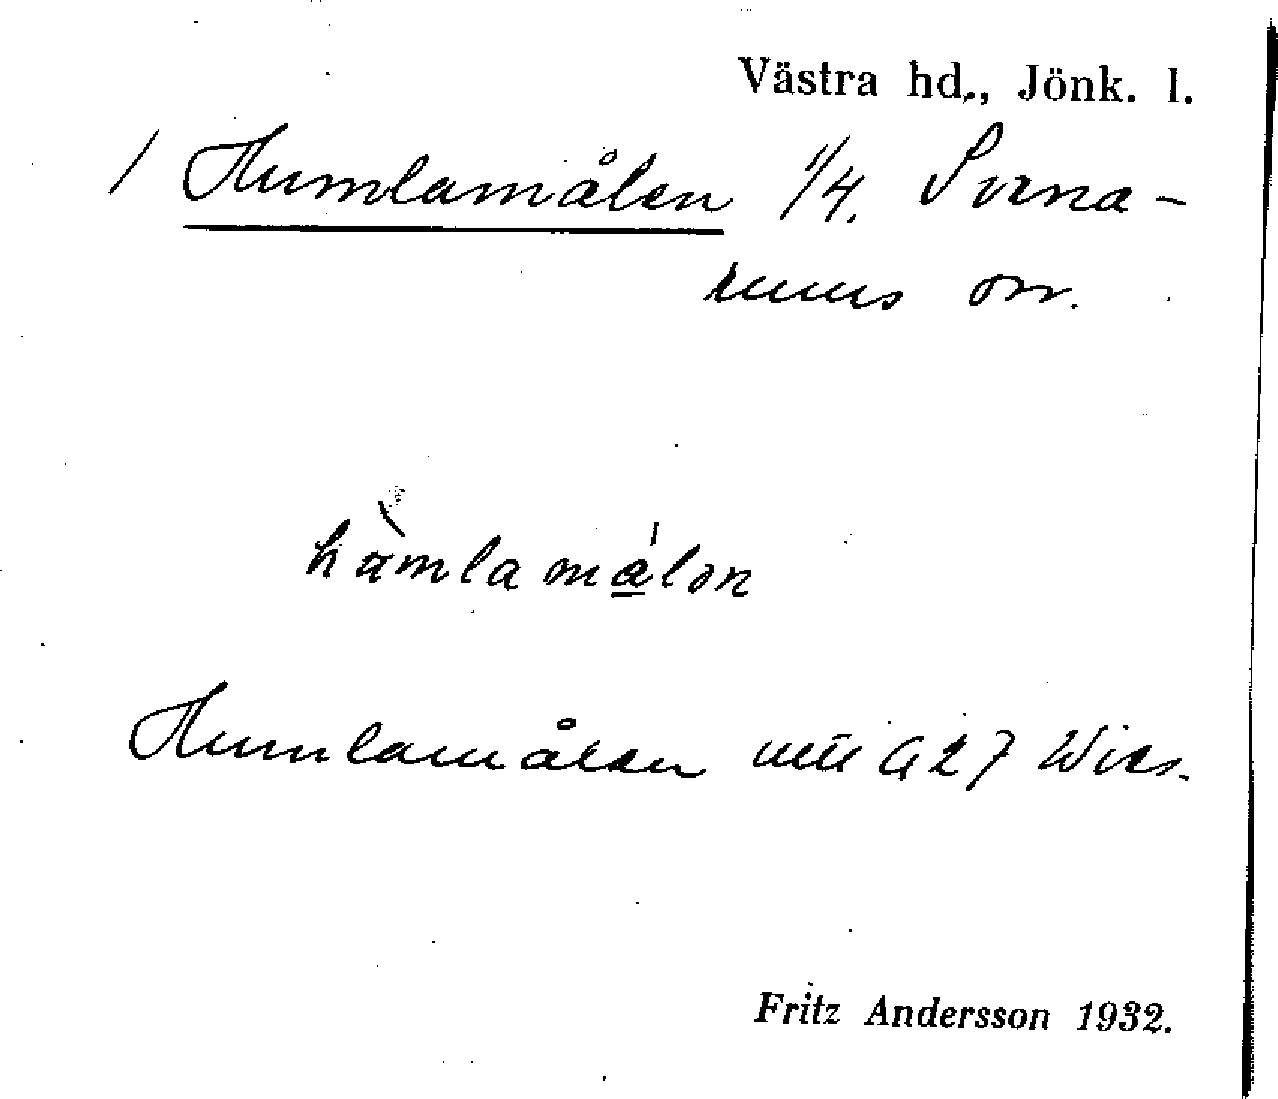 Västra hd., Jönk. l.
/ Humlamålen 1/4. Svena-
rums sn.
hàmlamálon
Humlamålen G 27 Wies.
Fritz Andersson 1932.